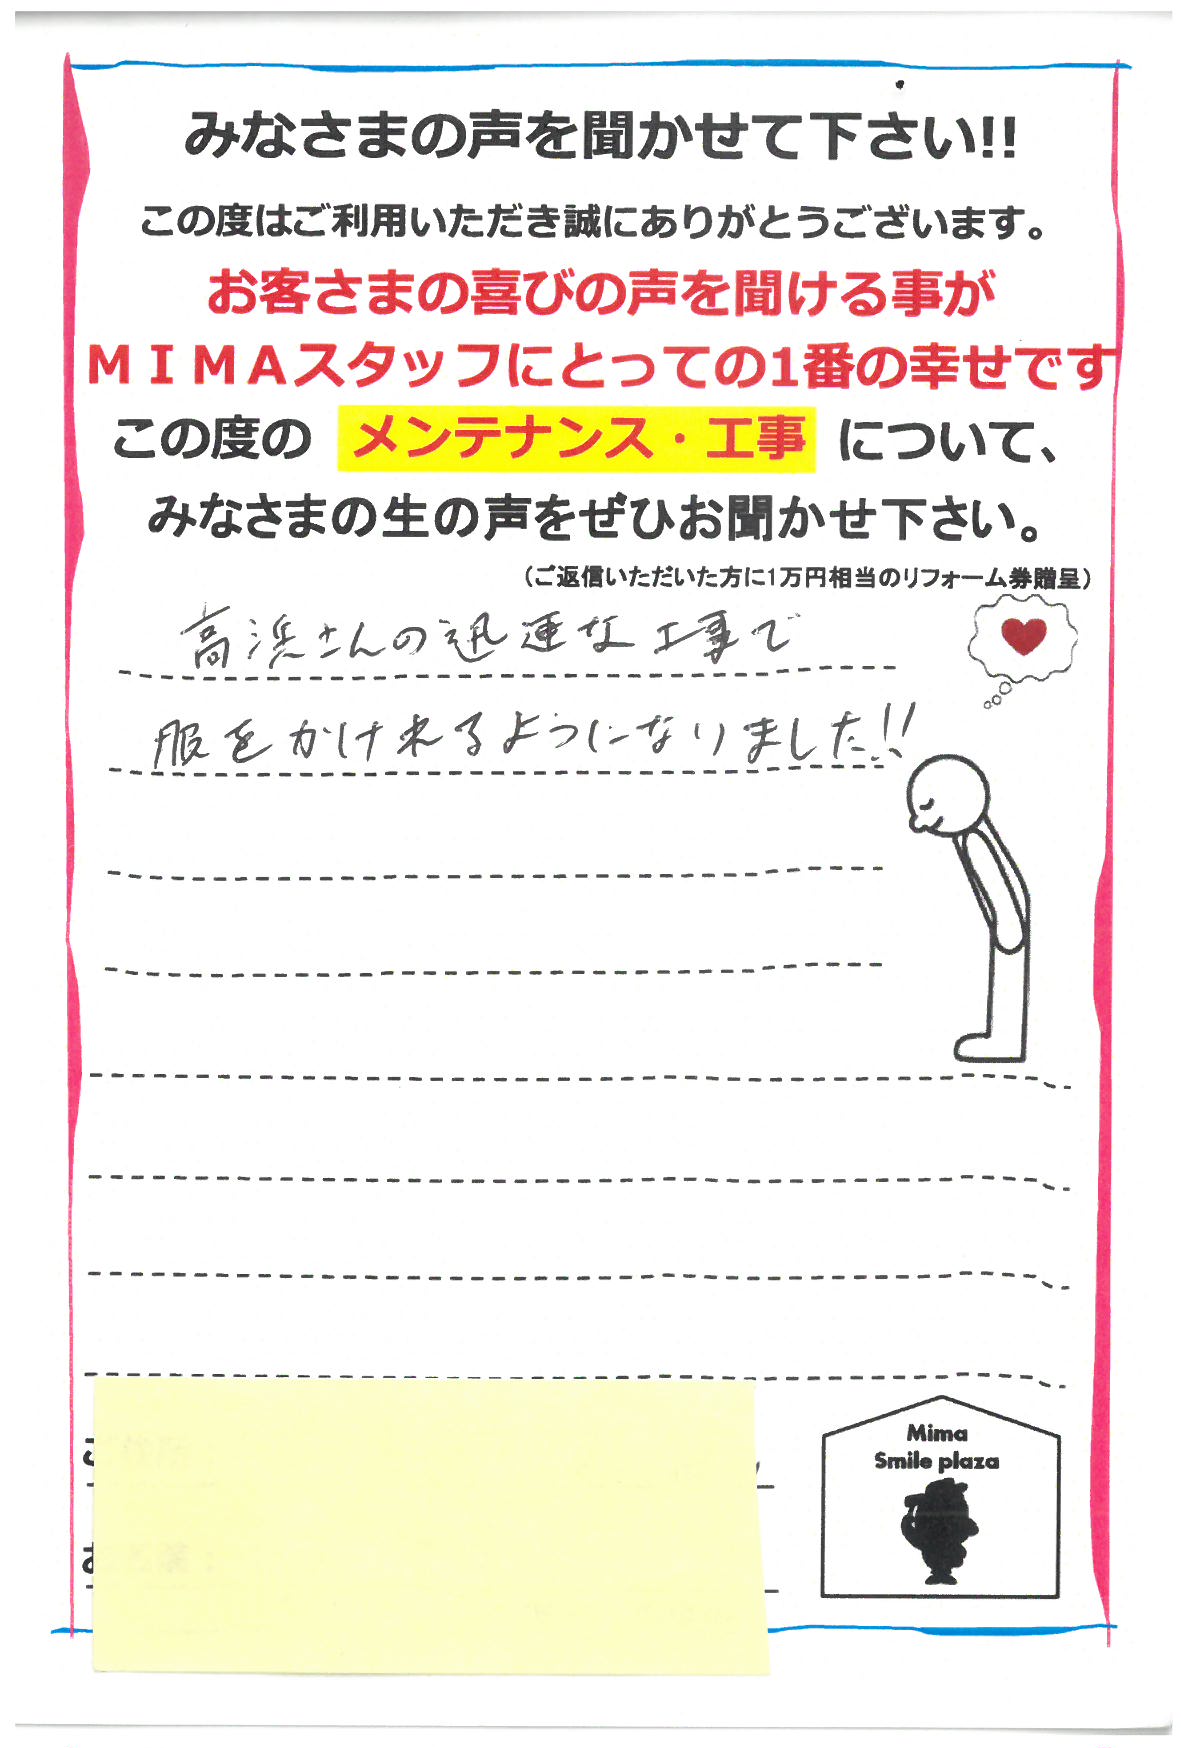 みなさまの声を聞かせて下さい!!
この度はご利用いただき誠にありがとうございます。
お客さまの喜びの声を聞ける事が
ＭＩＭＡスタッフにとっての1番の幸せです
この度の メンテナンス・工事 について、
みなさまの生の声をぜひお聞かせ下さい。
（ご返信いただいた方に1万円相当のリフォーム券贈呈）
高浜さんの迅速な工事で
服をかけれるようになりました!!
Mima
Smile plaza